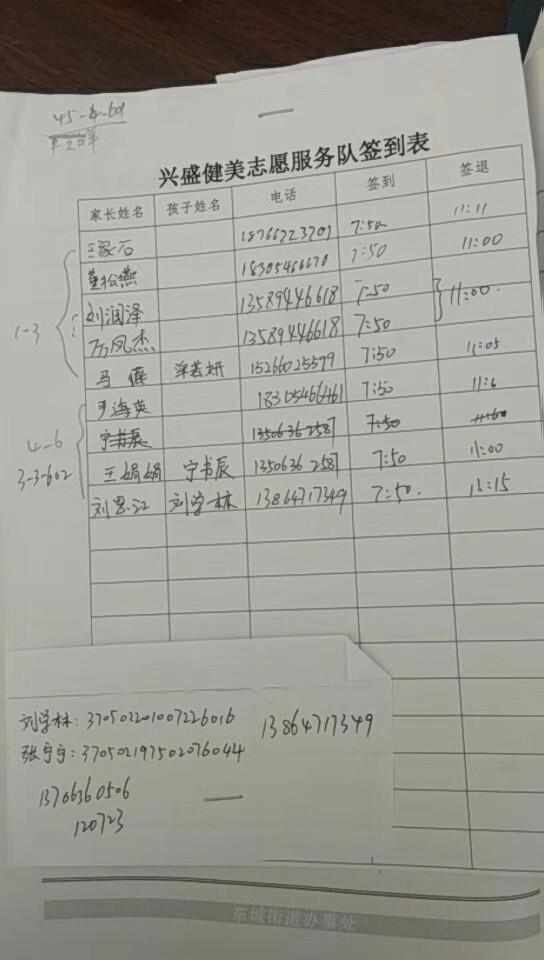 45-4-601
兴盛健美志愿服务队签到表
家长姓名 孩子姓名 电话 签到 签退
王家石 18766723701 7:50 11:11
董松燕 18305466670 7:50 11:00
1-3
刘润泽 13589446618 7:50 11:00
万凤杰 13589446618 7:50
马 15266025599 7:50 11:05
尹海英 18305466461 7:50
4-6
宁书辰 13506362587 7:50
3-3-602
王娟娟 宁书辰 13506362587 7:50 11:00
刘思江 刘学林 13864717349 7:50. 11:15
刘学林: 370502201007226016 13864717349
张宁宁: 370502197502076044
13706360506
120723
东城街道办事处